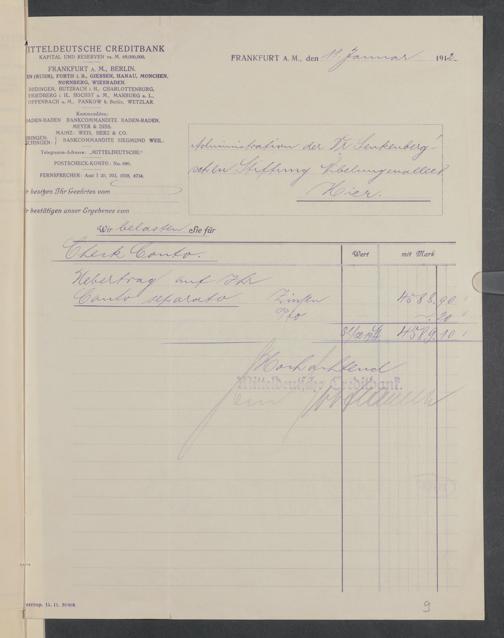 MITTELDEUTSCHE CREDITBANK
KAPITAL UND RESERVEN ca. M. 69,000,000.
FRANKFURT A. M., BERLIN.
EN (RUHR), FÜRTH i. B., GIESSEN, HANAU, MÜNCHEN,
NÜRNBERG, WIESBADEN.
BÜDINGEN, BUTZBACH i. H., CHARLOTTENBURG,
FRIEDBERG i. H., HÖCHST a. M., MARBURG a. L.,
OFFENBACH a. M., PANKOW b. Berlin, WETZLAR.
Kommanditen:
BADEN-BADEN BANKCOMMANDITE BADEN-BADEN,
MEYER & DISS.
MAINZ: WEIS, HERZ & CO.
BANKCOMMANDITE SIEGMUND WEIL.
Telegramm-Adresse: „MITTELDEUTSCHE"
POSTSCHECK-KONTO: No.
FERNSPRECHER: Amt I
FRANKFURT A. M., den 11 Januar 1912.
Administration der Dr Senkenberg'
schen Stiftung Nibelungenallee
Hier.
besitzen Ihr Geehrtes vom
bestätigen unser Ergebenes vom
Wir belasten Sie für
Check Conto.
Wert
mit Mark
Uebertrag auf Ihr
Conto separato Zinsen 4588.90
Pto -.20
31/12 4589.10
Hochachtend
Mitteldeutsche Creditbank.
9